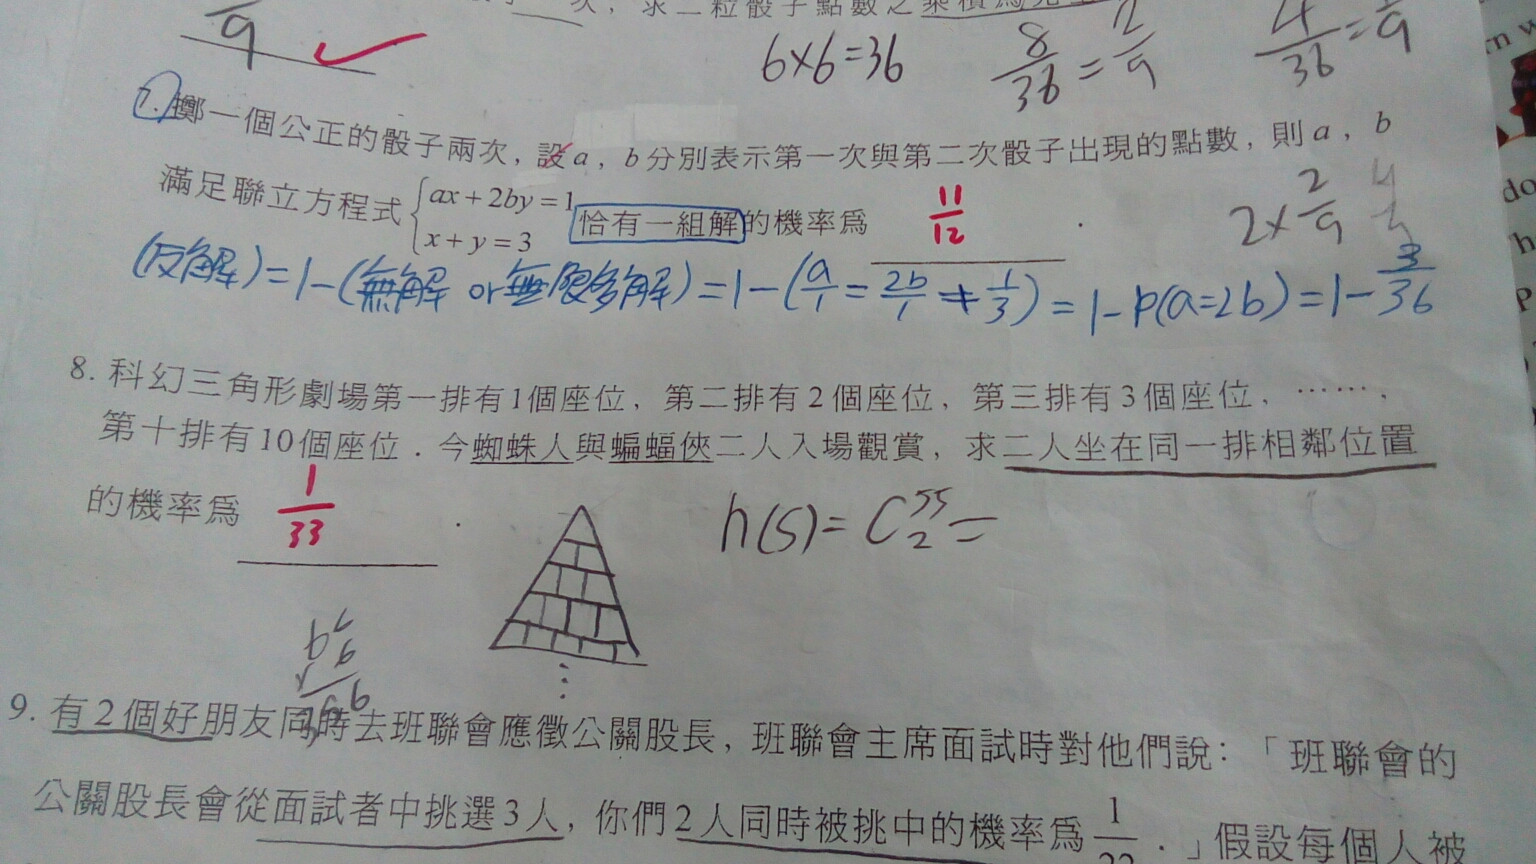 次，求二粒骰子點數之乘積為完
9
6×6=36
8/36=2/9
4/36=1/9
7. 擲一個公正的骰子兩次，設a，b分別表示第一次與第二次骰子出現的點數，則a，b
滿足聯立方程式{ax+2by=1 x+y=3 恰有一組解的機率為 11/12 .
2×2/9
(反解)=1-(無解 or 無限多解)=1-(a/1=2b/1≠1/3)=1-P(a=2b)=1-3/36
8. 科幻三角形劇場第一排有1個座位，第二排有2個座位，第三排有3個座位，……，
第十排有10個座位．今蜘蛛人與蝙蝠俠二人入場觀賞，求二人坐在同一排相鄰位置
的機率為 1/33 .
n(S)=C55 2=
9. 有2個好朋友同時去班聯會應徵公關股長，班聯會主席面試時對他們說：「班聯會的
公關股長會從面試者中挑選3人，你們2人同時被挑中的機率為1/22．」假設每個人被
rn w
do
h
P